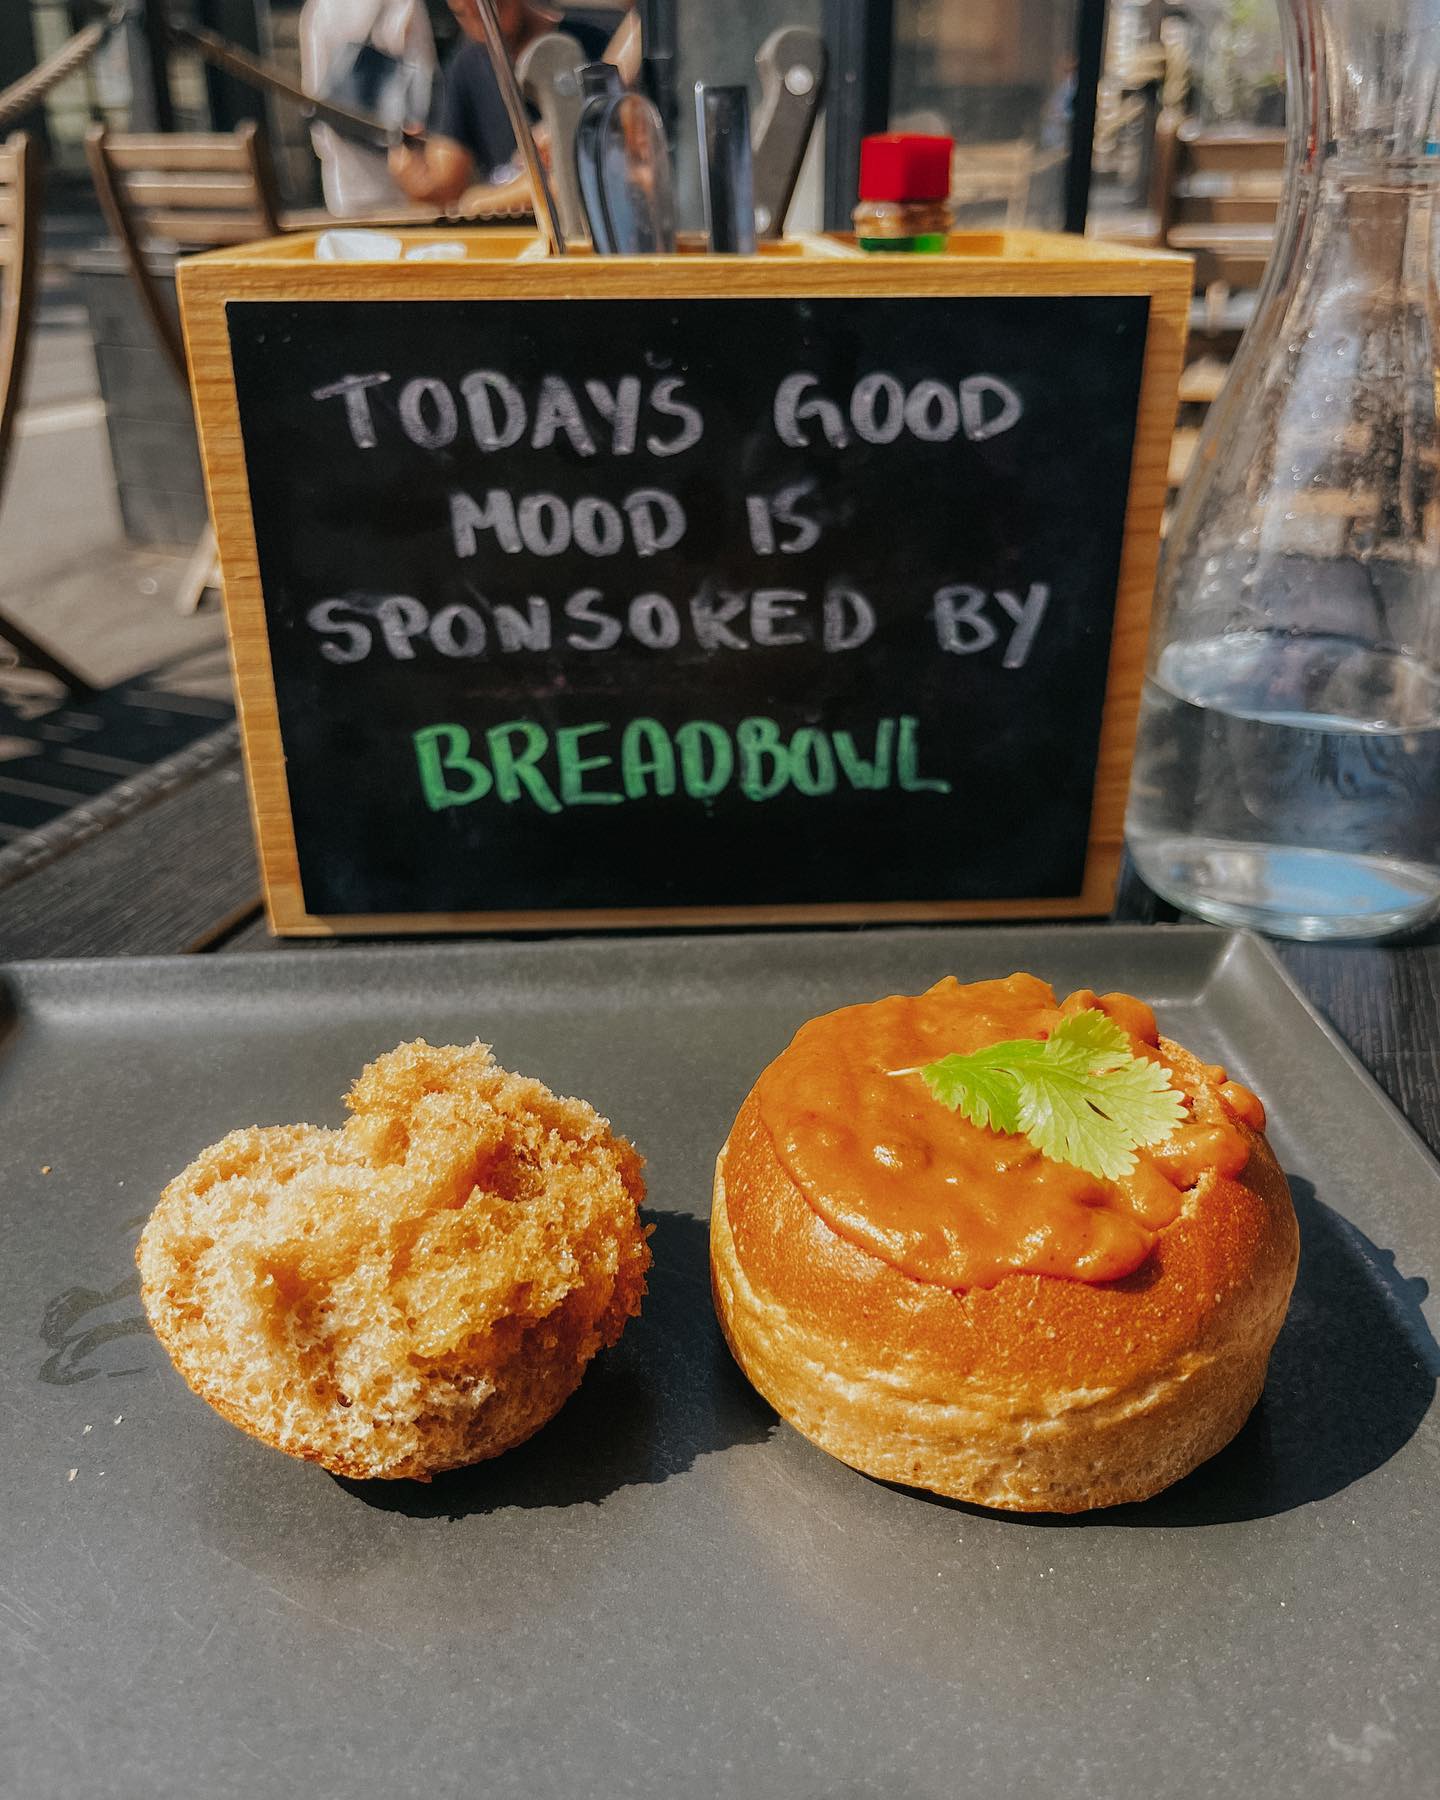 TODAY'S GOOD
MOOD IS
SPONSORED BY
BREADBOWL